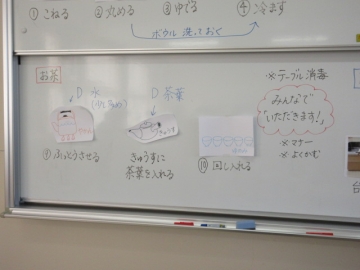 ① こねる ② 丸める ③ ゆでる ④ 冷ます
ボウル 洗っておく
お茶
水
茶葉
※ テーブル消毒
みんなで
いただきます!
※ マナー
※ よくかむ
ふっとうさせる
きゅうすに
茶葉を入れる
⑩ 回し入れる
台